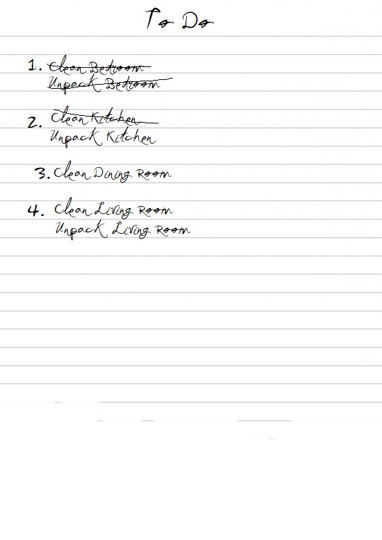 To Do
1. Clean Bedroom
Unpack Bedroom
2. Clean Kitchen
Unpack Kitchen
3. Clean Dining Room
4. Clean Living Room
Unpack Living Room